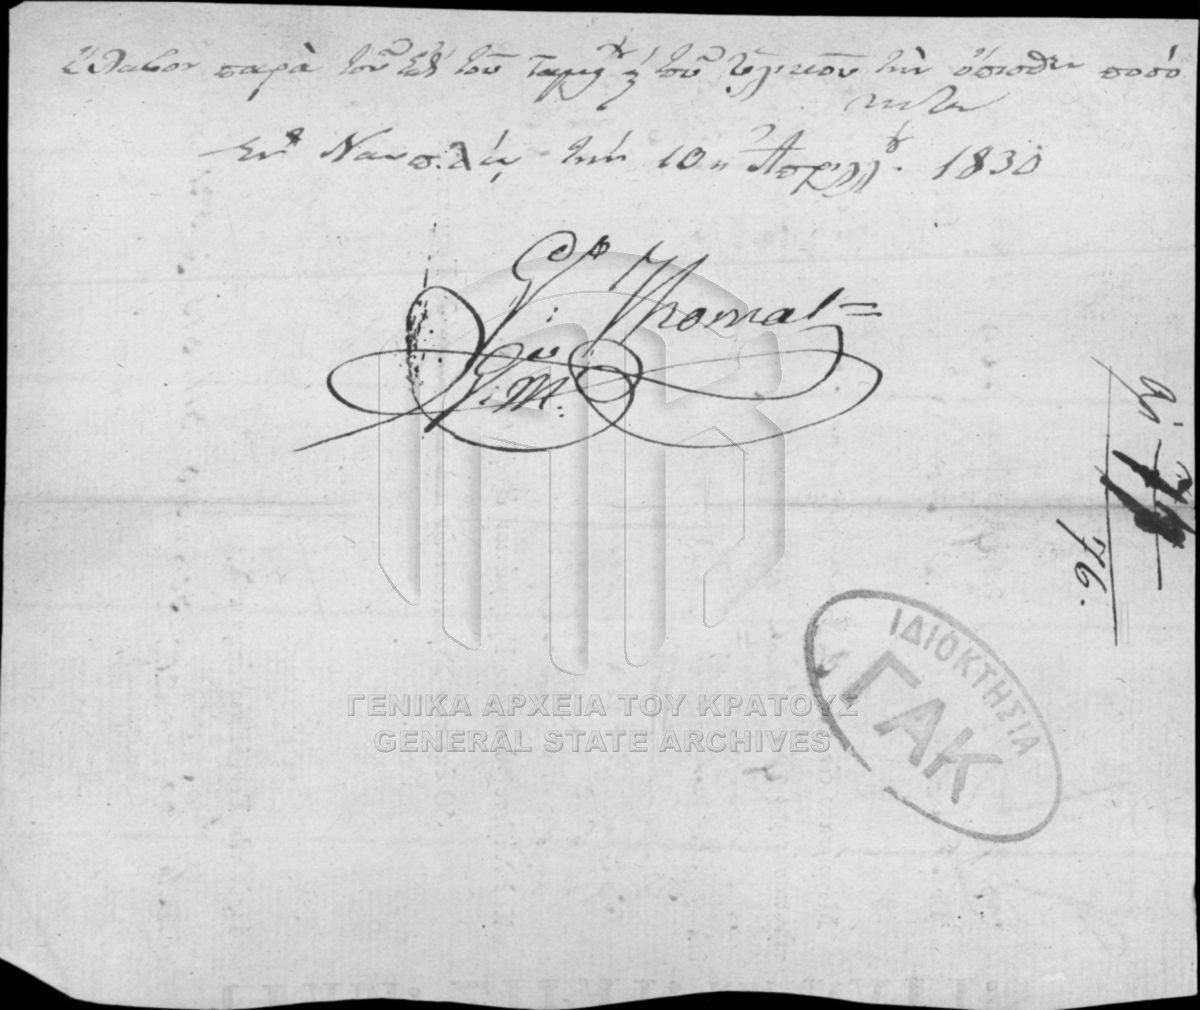 ἔλαβον παρὰ τοῦ ἐπὶ τοῦ Ταμ ὑλικοῦ τὴν ὄπισθεν ποσό
τητα
Ἐν Ναυπλίῳ τὴν 10 η Ἀπριλλ. 1830
Thomas
ΙΔΙΟΚΤΗΣΙΑ
ΓΑΚ
76.
ΓΕΝΙΚΑ ΑΡΧΕΙΑ ΤΟΥ ΚΡΑΤΟΥΣ
GENERAL STATE ARCHIVES